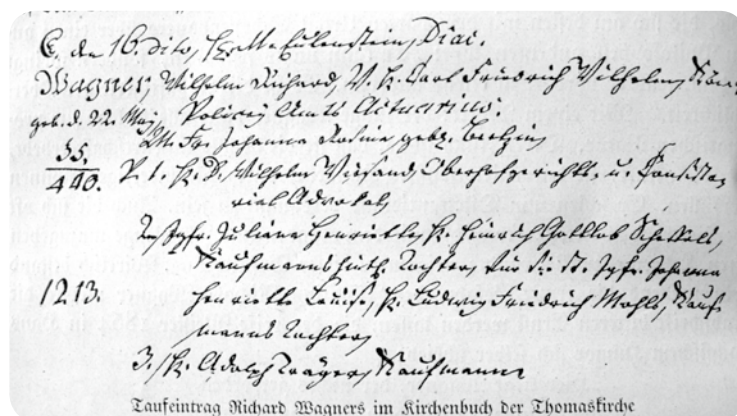 d. 16. dito, Eulenstein, Diac.
Wagner, Wilhelm Richard, V. H. Carl Friedrich Wilhelm,
geb. d. 22. Maj. Policey Amts Actuarius.
M. Fr. Johanna Rosine geb.
55.
440. P. 1. H. D. Wilhelm Wiesand, Oberhofgerichts- u. Consisto-
rial Advokat,
2. Jgfr. Juliane Henriette, H. Heinrich Gottlob
Kaufmanns Tochter, für die St. Jgfr. Johanna
1213. Henriette Louise, H. Ludwig Friedrich Mohls Kauf-
manns Tochter,
3. H. Adolph Träger, Kaufmann
Taufeintrag Richard Wagners im Kirchenbuch der Thomaskirche